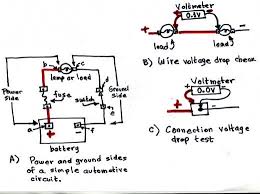 Voltmeter
0.1v
+
-
load
load
B) Wire voltage drop check
Voltmeter
0.0V
+
-
C) Connection voltage
drop test
b
c
lamp or load
Power
side
Ground
side
fuse
switch
d
e
a
f
+
-
battery
A) Power and ground sides
of a simple automotive
circuit.